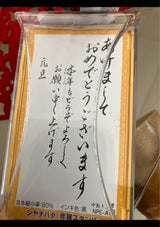 あけまして
おめでとうございます
本年もどうぞよろしく
お願い申し上げます
元旦
見本縮小率:90%
インキ色:黒
シヤチハタ 年賀スタンプ